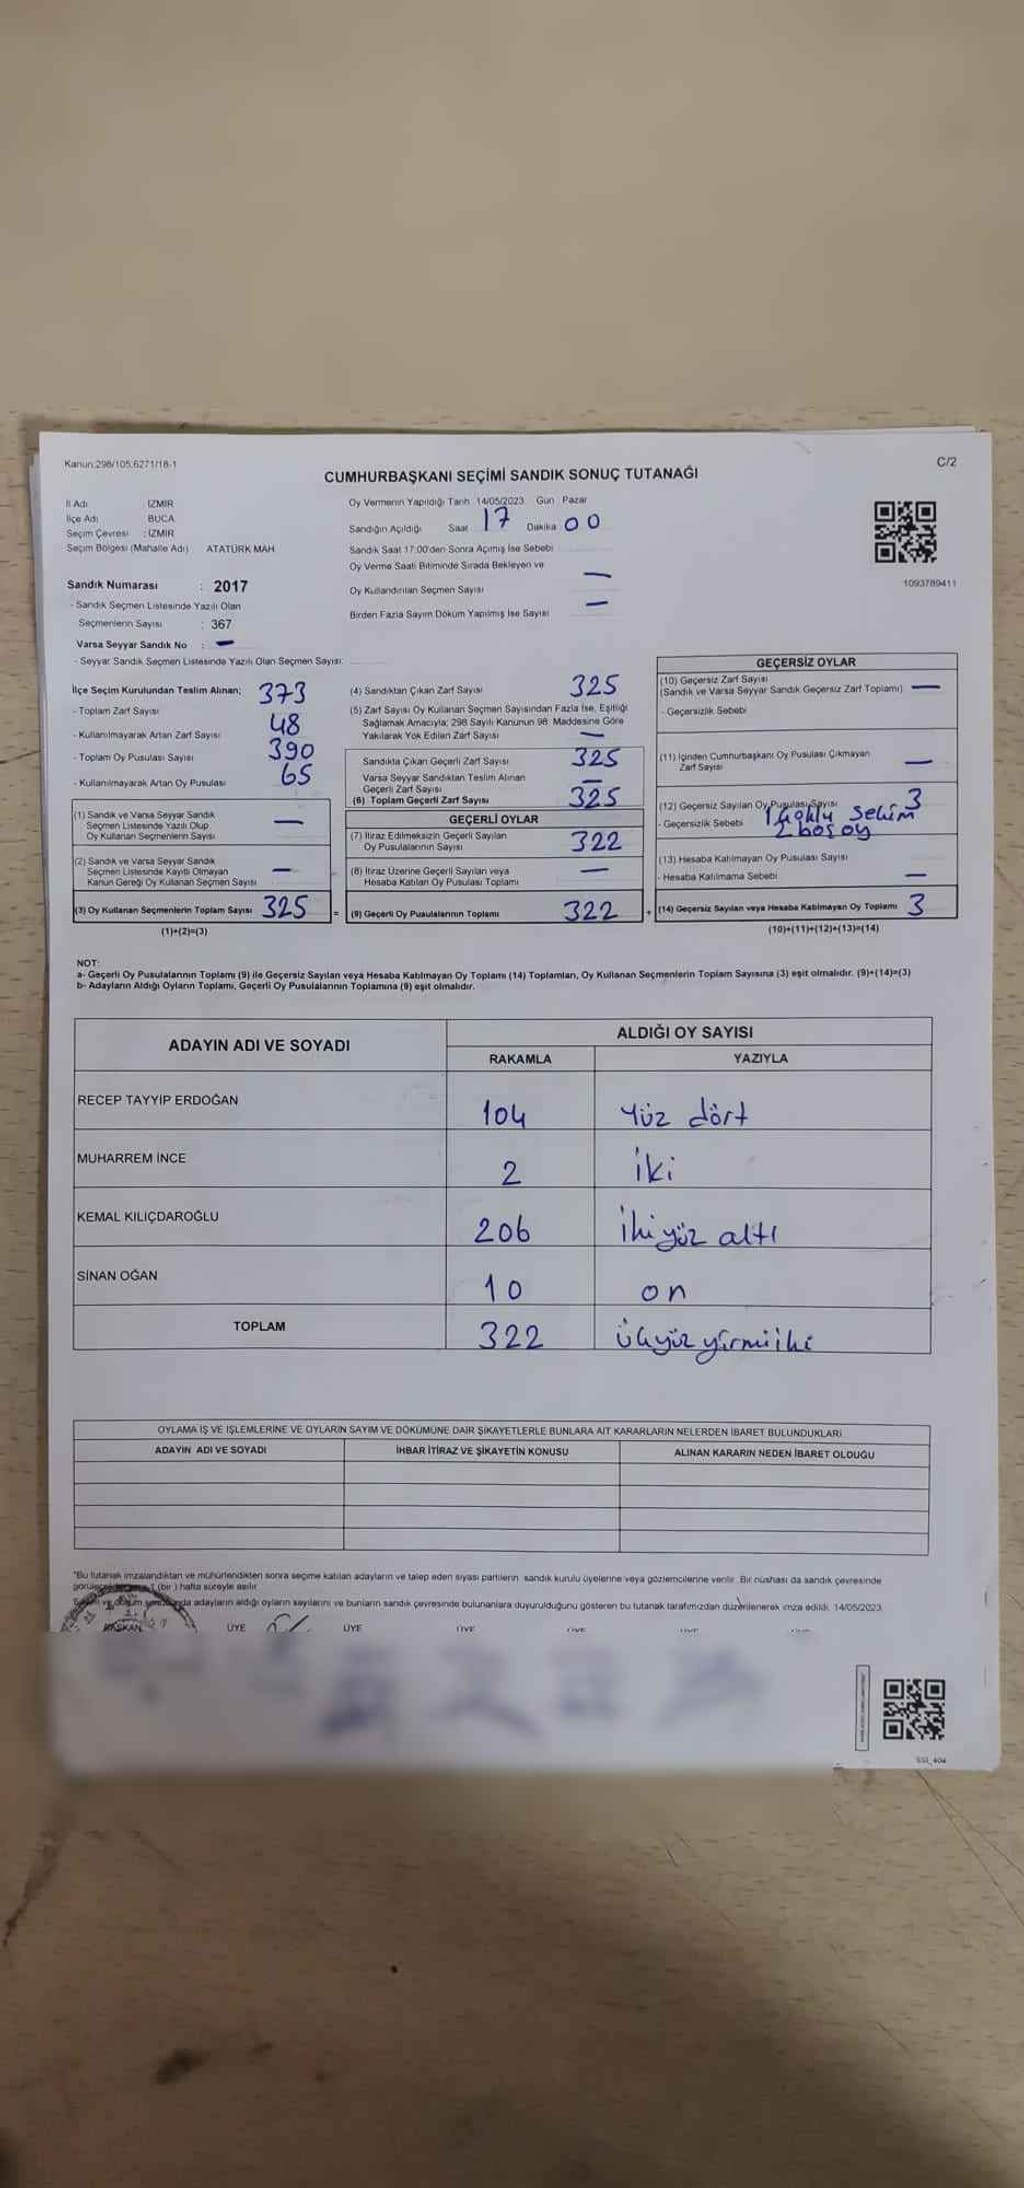 Kanun:298/105,6271/18-1
C/2
CUMHURBAŞKANI SEÇİMİ SANDIK SONUÇ TUTANAĞI
İl Adı İZMİR
İlçe Adı BUCA
Seçim Çevresi : İZMİR
Seçim Bölgesi (Mahalle Adı) ATATÜRK MAH
Sandık Numarası : 2017
- Sandık Seçmen Listesinde Yazılı Olan
Seçmenlerin Sayısı : 367
Varsa Seyyar Sandık No : -
- Seyyar Sandık Seçmen Listesinde Yazılı Olan Seçmen Sayısı:
Oy Vermenin Yapıldığı Tarih 14/05/2023 Gün Pazar
Sandığın Açıldığı Saat 17 Dakika 00
Sandık Saat 17:00'den Sonra Açımış İse Sebebi
Oy Verme Saati Bitiminde Sırada Bekleyen ve
Oy Kullandırılan Seçmen Sayısı -
Birden Fazla Sayım Döküm Yapılmış İse Sayısı -
1093789411
İlçe Seçim Kurulundan Teslim Alınan;
- Toplam Zarf Sayısı 373
- Kullanılmayarak Artan Zarf Sayısı 48
- Toplam Oy Pusulası Sayısı 390
- Kullanılmayarak Artan Oy Pusulası 65
(1) Sandık ve Varsa Seyyar Sandık
Seçmen Listesinde Yazılı Olup
Oy Kullanan Seçmenlerin Sayısı -
(2) Sandık ve Varsa Seyyar Sandık
Seçmen Listesinde Kayıtlı Olmayan
Kanun Gereği Oy Kullanan Seçmen Sayısı -
(3) Oy Kullanan Seçmenlerin Toplam Sayısı 325 =
(1)+(2)=(3)
(4) Sandıktan Çıkan Zarf Sayısı 325
(5) Zarf Sayısı Oy Kullanan Seçmen Sayısından Fazla İse, Eşitliği
Sağlamak Amacıyla; 298 Sayılı Kanunun 98. Maddesine Göre
Yakılarak Yok Edilen Zarf Sayısı -
Sandıkta Çıkan Geçerli Zarf Sayısı 325
Varsa Seyyar Sandıktan Teslim Alınan
Geçerli Zarf Sayısı -
(6) Toplam Geçerli Zarf Sayısı 325
GEÇERLİ OYLAR
(7) İtiraz Edilmeksizin Geçerli Sayılan
Oy Pusulalarının Sayısı 322
(8) İtiraz Üzerine Geçerli Sayılan veya
Hesaba Katılan Oy Pusulası Toplamı -
(9) Geçerli Oy Pusulalarının Toplamı 322 +
GEÇERSİZ OYLAR
(10) Geçersiz Zarf Sayısı
(Sandık ve Varsa Seyyar Sandık Geçersiz Zarf Toplamı) -
- Geçersizlik Sebebi
(11) İçinden Cumhurbaşkanı Oy Pusulası Çıkmayan
Zarf Sayısı -
(12) Geçersiz Sayılan Oy Pusulası Sayısı 3
- Geçersizlik Sebebi 1 çoklu seçim
2 boş oy
(13) Hesaba Katılmayan Oy Pusulası Sayısı
- Hesaba Katılmama Sebebi -
(14) Geçersiz Sayılan veya Hesaba Katılmayan Oy Toplamı 3
(10)+(11)+(12)+(13)=(14)
NOT:
a- Geçerli Oy Pusulalarının Toplamı (9) ile Geçersiz Sayılan veya Hesaba Katılmayan Oy Toplamı (14) Toplamları, Oy Kullanan Seçmenlerin Toplam Sayısına (3) eşit olmalıdır. (9)+(14)=(3)
b- Adayların Aldığı Oyların Toplamı, Geçerli Oy Pusulalarının Toplamına (9) eşit olmalıdır.
ADAYIN ADI VE SOYADI
ALDIĞI OY SAYISI
RAKAMLA YAZIYLA
RECEP TAYYİP ERDOĞAN 104 Yüz dört
MUHARREM İNCE 2 iki
KEMAL KILIÇDAROĞLU 206 ikiyüz altı
SİNAN OĞAN 10 on
TOPLAM 322 üçyüz yirmiiki
OYLAMA İŞ VE İŞLEMLERİNE VE OYLARIN SAYIM VE DÖKÜMÜNE DAİR ŞİKAYETLERLE BUNLARA AİT KARARLARIN NELERDEN İBARET BULUNDUKLARI
ADAYIN ADI VE SOYADI İHBAR İTİRAZ VE ŞİKAYETİN KONUSU ALINAN KARARIN NEDEN İBARET OLDUĞU
*Bu tutanak imzalandıktan ve mühürlendikten sonra seçime katılan adayların ve talep eden siyasi partilerin sandık kurulu üyelerine veya gözlemcilerine verilir. Bir nüshası da sandık çevresinde
1 (bir) hafta süreyle asılır
adayların aldığı oyların sayılarını ve bunların sandık çevresinde bulunanlara duyurulduğunu gösteren bu tutanak tarafımızdan düzenlenerek imza edildi. 14/05/2023
BAŞKAN ÜYE ÜYE